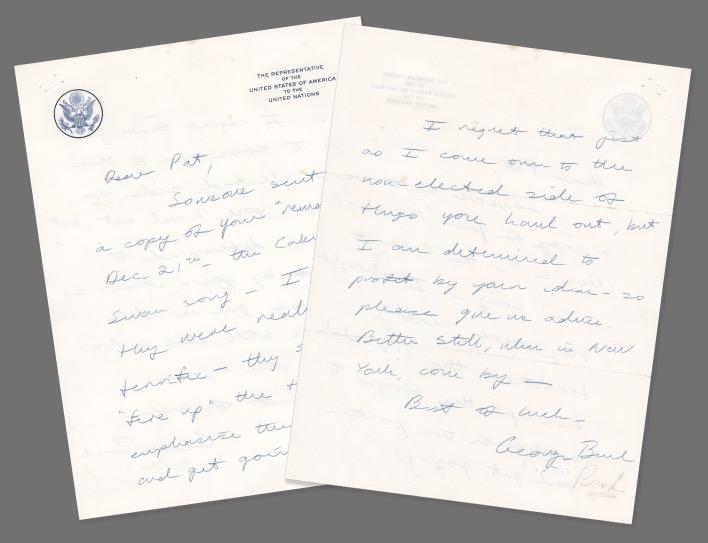 THE REPRESENTATIVE
OF THE
UNITED STATES OF AMERICA
TO THE
UNITED NATIONS
Dear Pat,
Someone sent
a copy of your "rema
Dec. 21st - the
Swan song - I
They were reall
terrific - they s
"fire up" the t
emphasise the
and get goin
I regret that just
as I come over to the
non-elected side of
things you haul out, but
I am determined to
profit by your ideas - so
please give us advice.
Better still, when in New
York, come by -
Best of luck -
George Bush
Bush